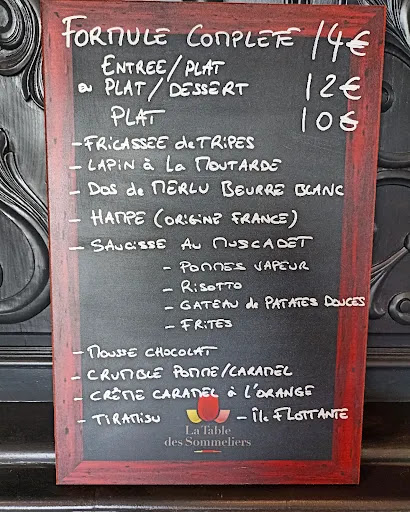 FORMULE COMPLETE 14€
ENTREE/PLAT
ou PLAT/DESSERT 12€
PLAT 10€
- FRICASSEE de TRIPES
- LAPIN à La MOUTARDE
- DOS de MERLU BEURRE BLANC
- HAMPE (ORIGINE FRANCE)
- SAUCISSE AU MUSCADET
- POMMES VAPEUR
- RISOTTO
- GATEAU de PATATES DOUCES
- FRITES
- MOUSSE CHOCOLAT
- CRUMBLE POMME/CARAMEL
- CRÊME CARAMEL à L'ORANGE
- TIRAMISU - ÎLE FLOTTANTE
La Table
des Sommeliers